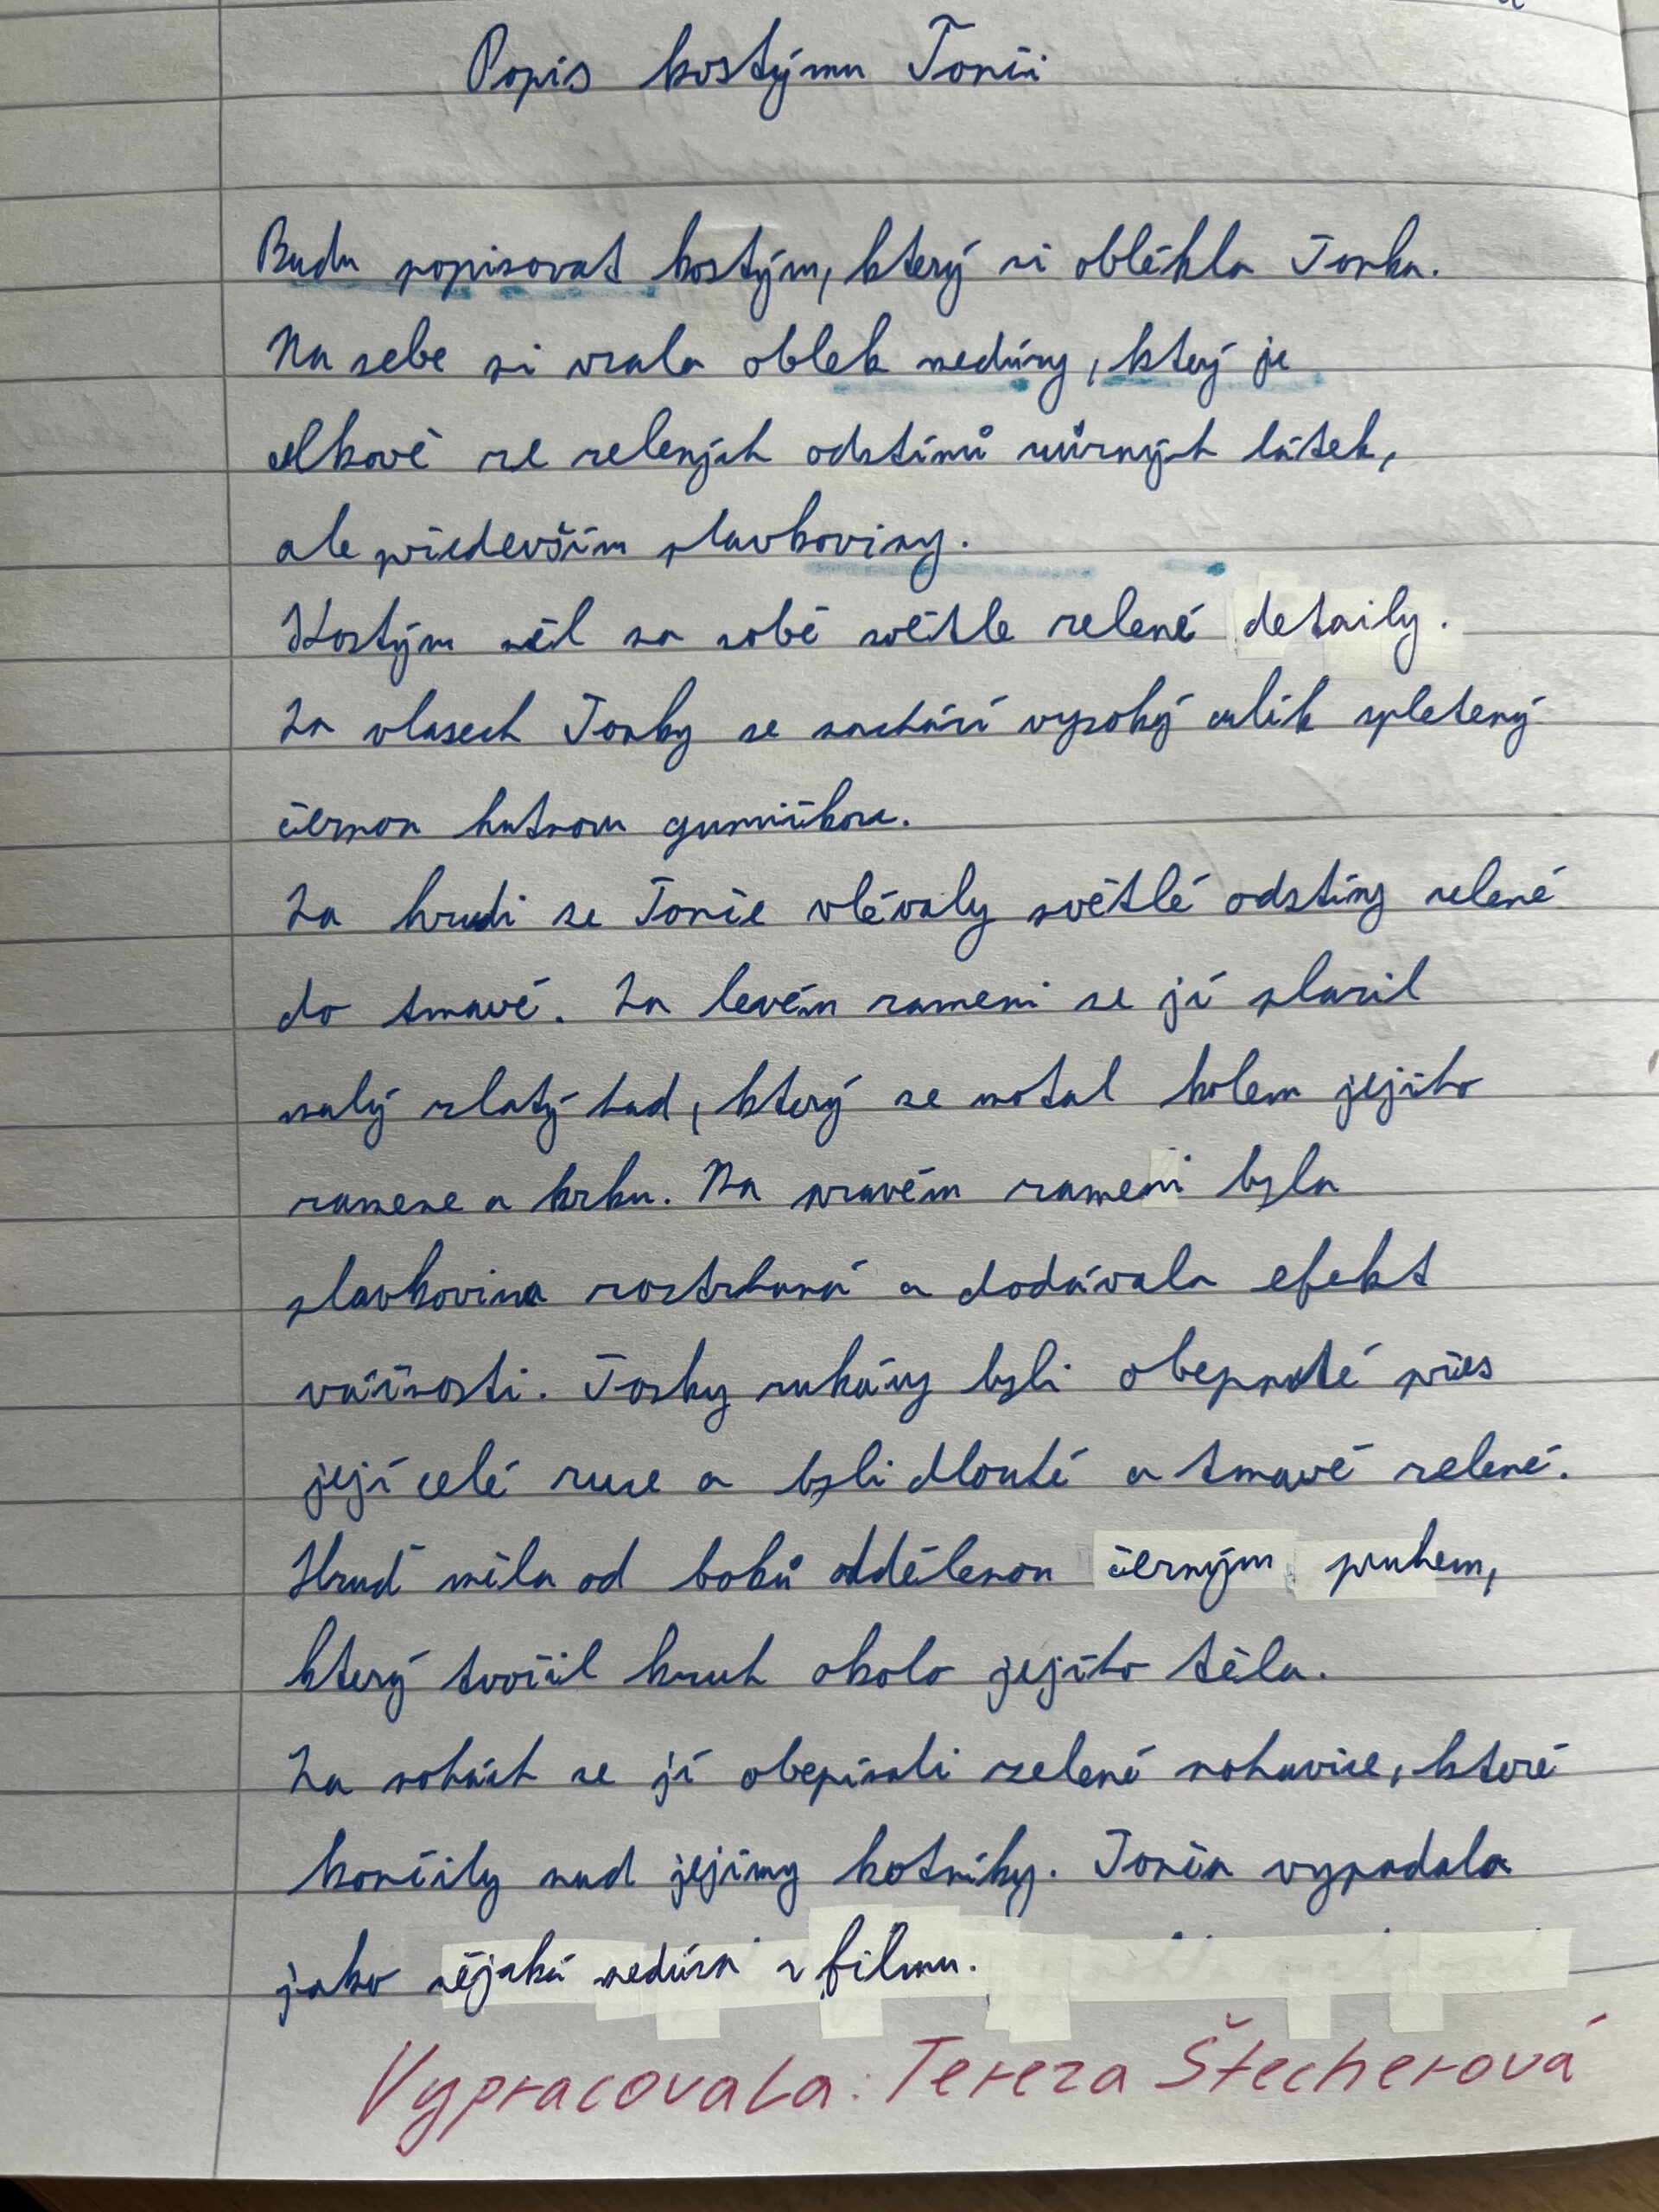 Popis kostýmu Tonči
Budu popisovat kostým, který si oblékla Tonka.
Na sebe si vzala oblek medúzy, který je
celkově ze zelených odstínů různých látek,
ale především plavkoviny.
Kostým měl na sobě světle zelené detaily.
Na vlasech Tonky se nachází vysoký culík spletený
černou hutnou gumičkou.
Na hrudi se Tonče vlévaly světlé odstíny zelené
do tmavé. Na levém rameni se jí plazil
malý zlatý had, který se motal kolem jejího
ramene a krku. Na pravém rameni byla
plavkovina roztrhaná a dodávala efekt
vážnosti. Tonky rukávy byli obepnuté přes
její celé ruce a byli dlouhé a tmavě zelené.
Hruď měla od boků oddělenou černým pruhem,
který tvořil kruh okolo jejího těla.
Na nohách se jí obepínali zelené nohavice, které
končily nad jejímy kotníky. Tonča vypadala
jako nějaká medúza z filmu.
Vypracovala: Tereza Štecherová